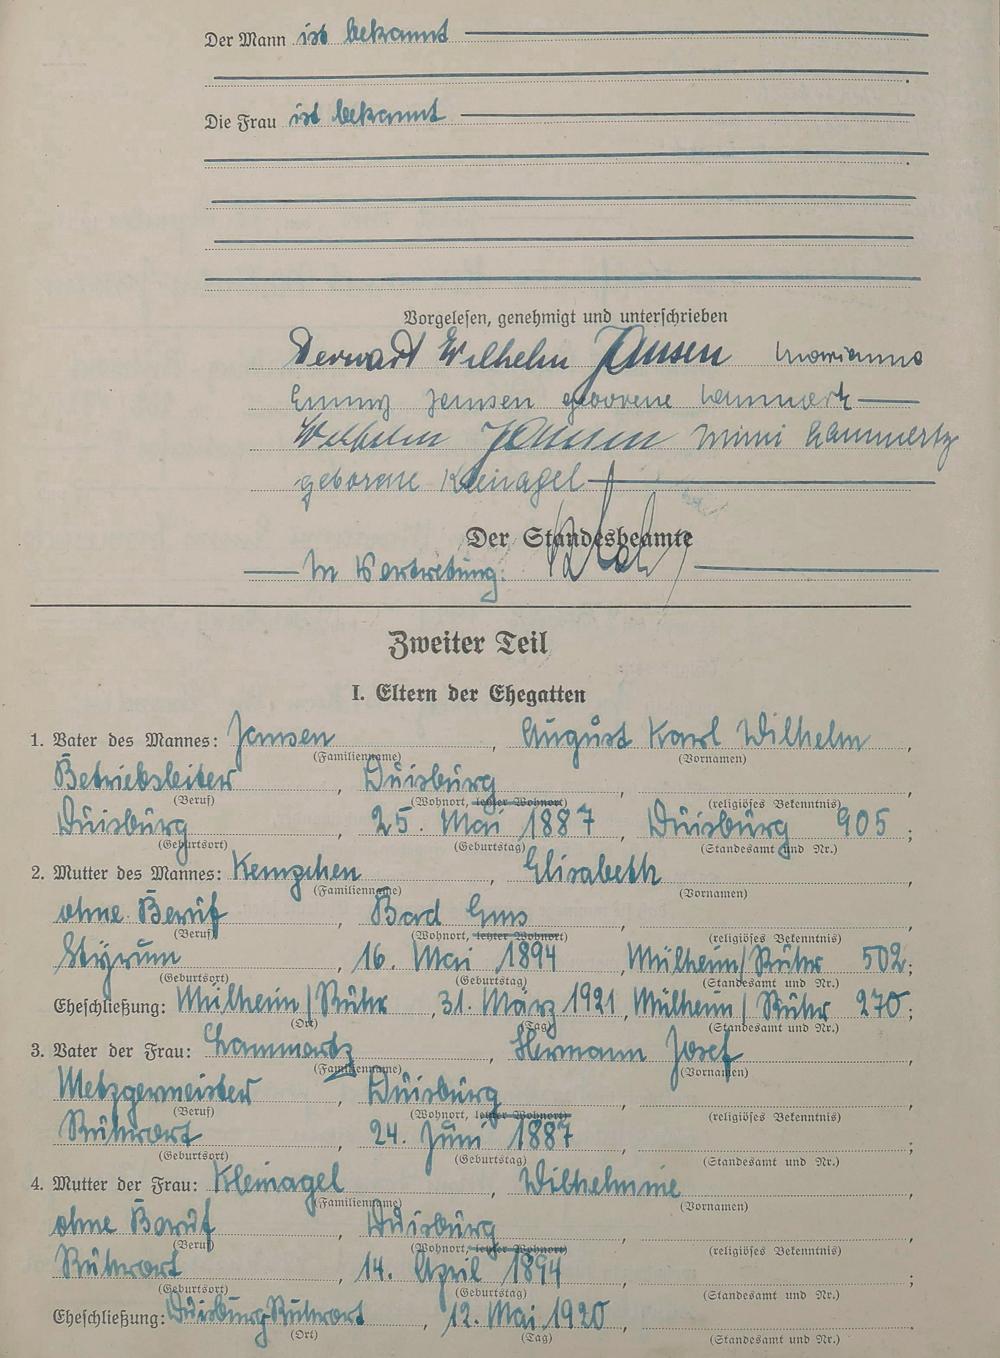 Der Mann ist bekannt
Die Frau ist bekannt
Vorgelesen, genehmigt und unterschrieben
Bernard Wilhelm Jansen Marianne
Emmy Jansen geborene Lammertz
Wilhelm Jansen Mimi Lammertz
geborene Kleinagel
Der Standesbeamte
In Vertretung:
Zweiter Teil
I. Eltern der Ehegatten
1. Vater des Mannes: Jansen, August Karl Wilhelm,
(Familienname) (Vornamen)
Betriebsleiter, Duisburg,
(Beruf) (Wohnort, letzter Wohnort) (religiöses Bekenntnis)
Duisburg, 25. Mai 1887, Duisburg 905;
(Geburtsort) (Geburtstag) (Standesamt und Nr.)
2. Mutter des Mannes: Kempchen, Elisabeth,
(Familienname) (Vornamen)
ohne Beruf, Bad Ems,
(Beruf) (Wohnort, letzter Wohnort) (religiöses Bekenntnis)
Styrum, 16. Mai 1894, Mülheim/Ruhr 502;
(Geburtsort) (Geburtstag) (Standesamt und Nr.)
Eheschließung: Mülheim/Ruhr, 31. März 1921, Mülheim/Ruhr 270;
(Ort) (Tag) (Standesamt und Nr.)
3. Vater der Frau: Lammertz, Hermann Josef,
(Familienname) (Vornamen)
Metzgermeister, Duisburg,
(Beruf) (Wohnort, letzter Wohnort) (religiöses Bekenntnis)
Ruhrort, 24. Juni 1887;
(Geburtsort) (Geburtstag) (Standesamt und Nr.)
4. Mutter der Frau: Kleinagel, Wilhelmine,
(Familienname) (Vornamen)
ohne Beruf, Duisburg,
(Beruf) (Wohnort, letzter Wohnort) (religiöses Bekenntnis)
Ruhrort, 14. April 1894;
(Geburtsort) (Geburtstag) (Standesamt und Nr.)
Eheschließung: Duisburg-Ruhrort, 12. Mai 1920,
(Ort) (Tag) (Standesamt und Nr.)